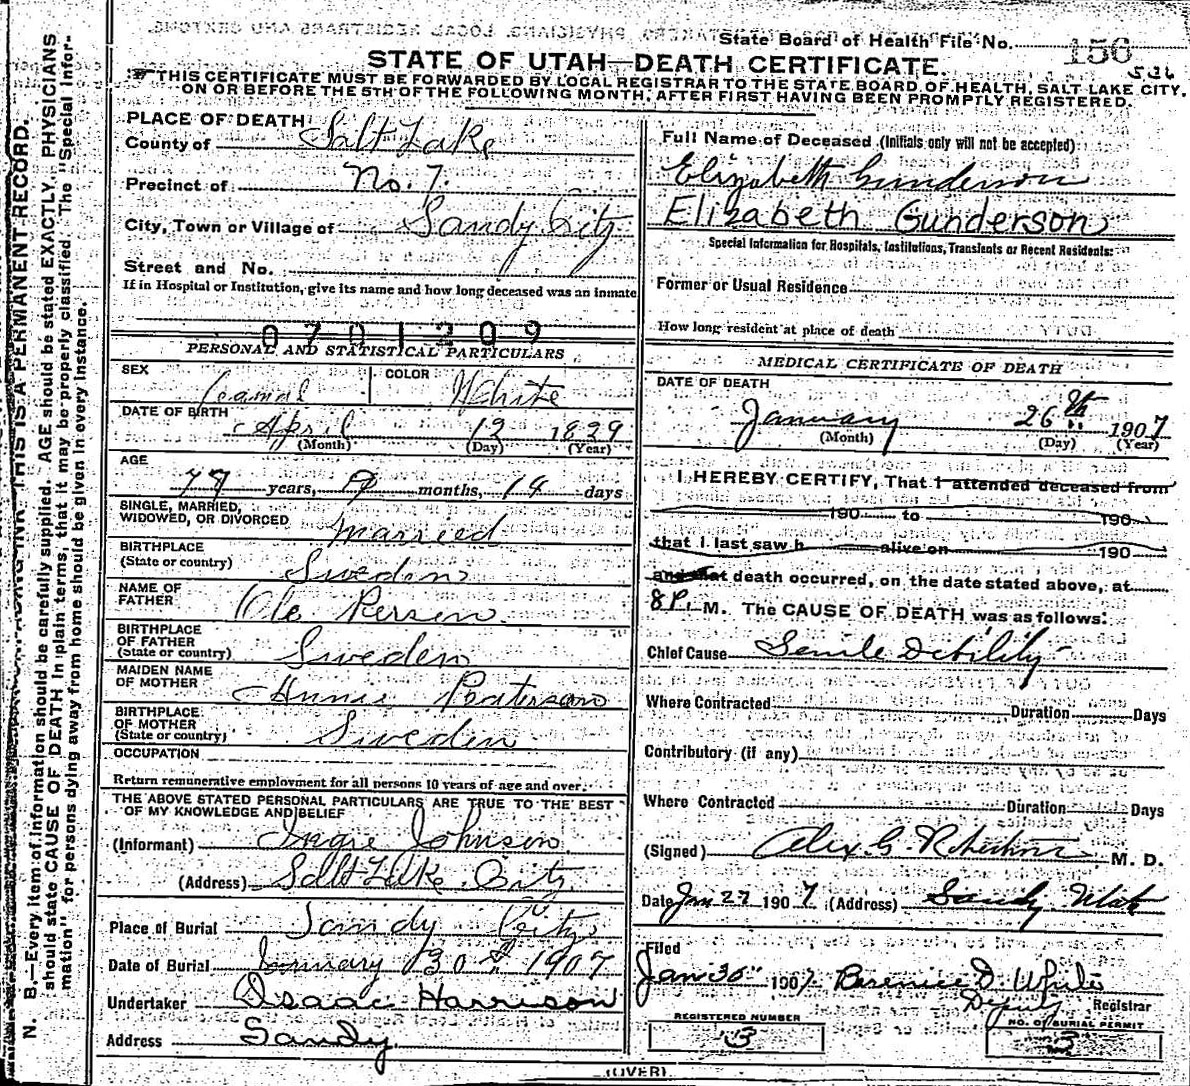 State Board of Health File No. 156
526
STATE OF UTAH—DEATH CERTIFICATE
THIS CERTIFICATE MUST BE FORWARDED BY LOCAL REGISTRAR TO THE STATE BOARD OF HEALTH, SALT LAKE CITY,
ON OR BEFORE THE 5TH OF THE FOLLOWING MONTH, AFTER FIRST HAVING BEEN PROMPTLY REGISTERED.
N. B.—Every item of information should be carefully supplied. AGE should be stated EXACTLY. PHYSICIANS
should state CAUSE OF DEATH in plain terms, that it may be properly classified. The "Special Infor-
mation" for persons dying away from home should be given in every instance.
THIS IS A PERMANENT RECORD.
PLACE OF DEATH
County of Salt Lake
Precinct of No. 7.
City, Town or Village of Sandy City
Street and No.
If in Hospital or Institution, give its name and how long deceased was an inmate
0701209
PERSONAL AND STATISTICAL PARTICULARS
SEX
COLOR White
DATE OF BIRTH April 12 1829
(Month) (Day) (Year)
AGE
77 years, 9 months, 14 days
SINGLE, MARRIED,
WIDOWED, OR DIVORCED Married
BIRTHPLACE
(State or country) Sweden
NAME OF
FATHER Ole Person
BIRTHPLACE
OF FATHER
(State or country) Sweden
MAIDEN NAME
OF MOTHER Annie Peaterson
BIRTHPLACE
OF MOTHER
(State or country) Sweden
OCCUPATION
Return remunerative employment for all persons 10 years of age and over.
THE ABOVE STATED PERSONAL PARTICULARS ARE TRUE TO THE BEST
OF MY KNOWLEDGE AND BELIEF
(Informant) Johnson
(Address) Salt Lake City
Place of Burial Sandy City
Date of Burial January 30th 1907
Undertaker Isaac Harrison
Address Sandy
Full Name of Deceased (Initials only will not be accepted)
Elizabeth Gunderson
Elizabeth Gunderson
Special Information for Hospitals, Institutions, Transients or Recent Residents:
Former or Usual Residence
How long resident at place of death
MEDICAL CERTIFICATE OF DEATH
DATE OF DEATH
January 26th 1907
(Month) (Day) (Year)
I HEREBY CERTIFY, That I attended deceased from
190 to 190
that I last saw h alive on 190
and that death occurred, on the date stated above, at
8 P. M. The CAUSE OF DEATH was as follows:
Chief Cause Senile Debility
Where Contracted Duration Days
Contributory (if any)
Where Contracted Duration Days
(Signed) Alex. G. Robertson M. D.
Date Jan 27 1907 (Address) Sandy Utah
Filed
Jan 30 1907 Berenice D. White
Deputy Registrar
REGISTERED NUMBER
3
NO. OF BURIAL PERMIT
3
(OVER)